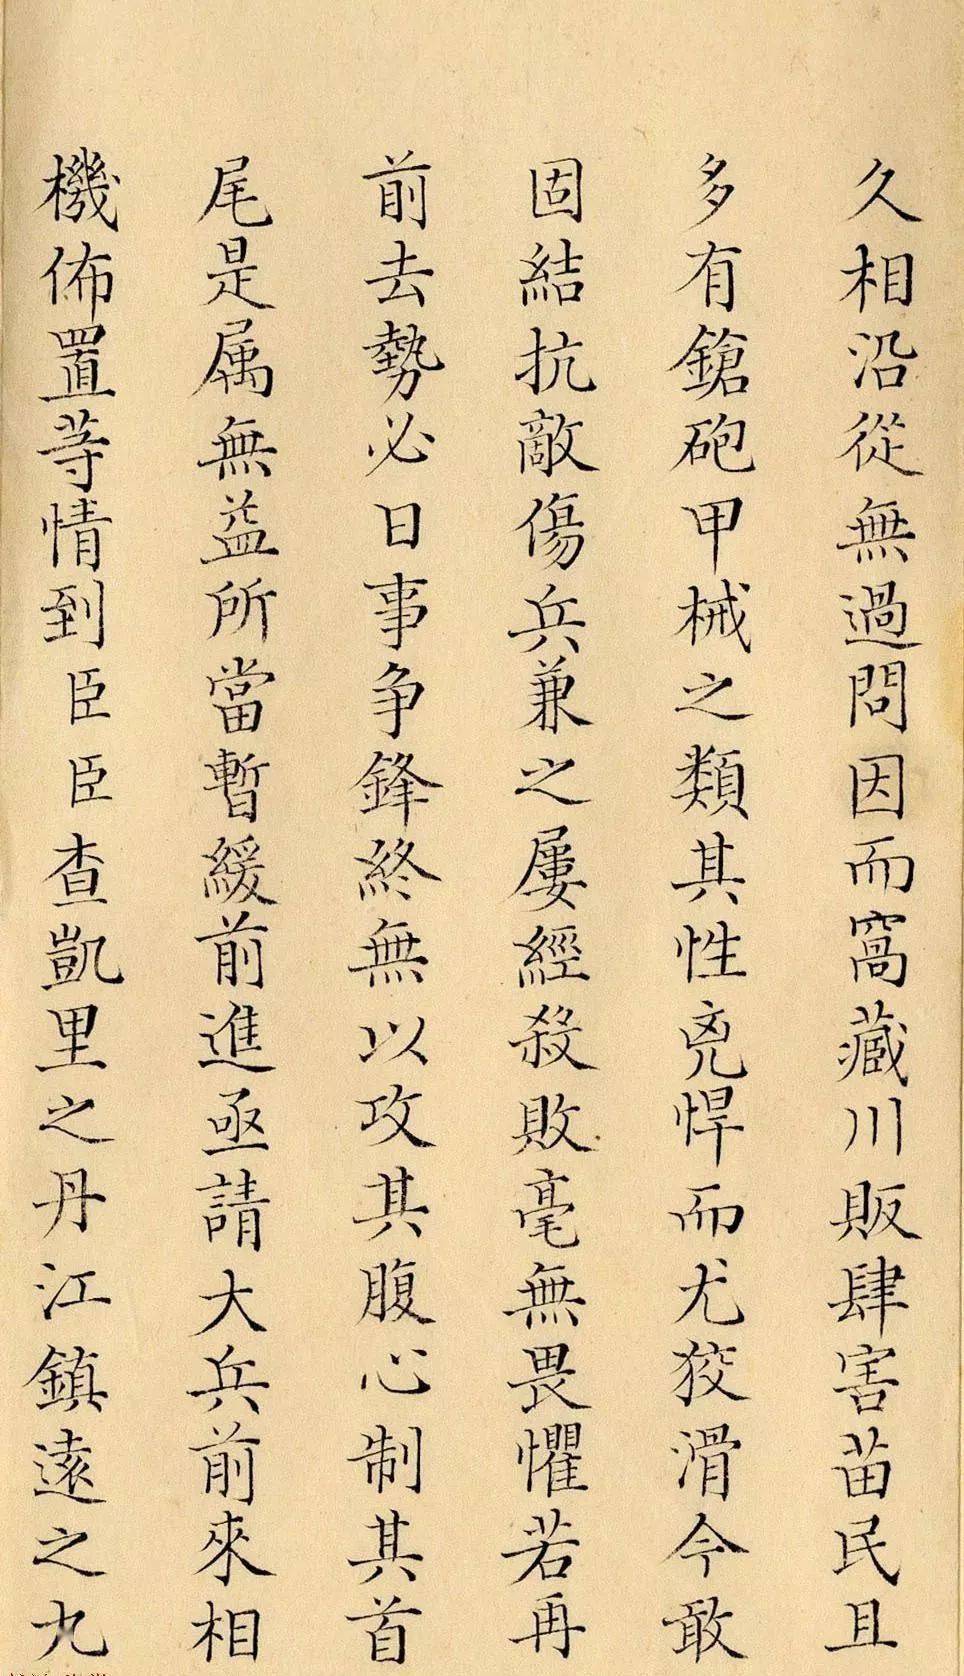 久相沿從無過問因而窩藏川販肆害苗民且
多有鎗砲甲械之類其性兇悍而尤狡滑今敢
固結抗敵傷兵兼之屢經殺敗毫無畏懼若再
前去勢必日事争鋒終無以攻其腹心制其首
尾是属無益所當暫緩前進亟請大兵前來相
機佈置等情到臣臣查凱里之丹江鎮遠之九